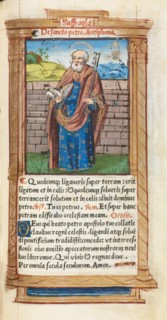 Suffragia
De sancto petro. Antiphona.
Quodcunq; ligaveris super terram: erit
ligatum et in celis. Et quodcunq; solveris super
terram: erit solutum et in celis dicit dominus
petro. Tu es petrus. Et super hanc
petram edificabo ecclesiam meam. Oratio.
Deus qui beato petro apostolo tuo collatis
clavibus regni celestis. ligandi atq; solve
di pontificium tradidisti: concede: ut interces
sionis eius auxilio a peccatorum nostrorum nexi
bus liberemur. Qui vivis et regnas deus
Per omnia secula seculorum. Amen.